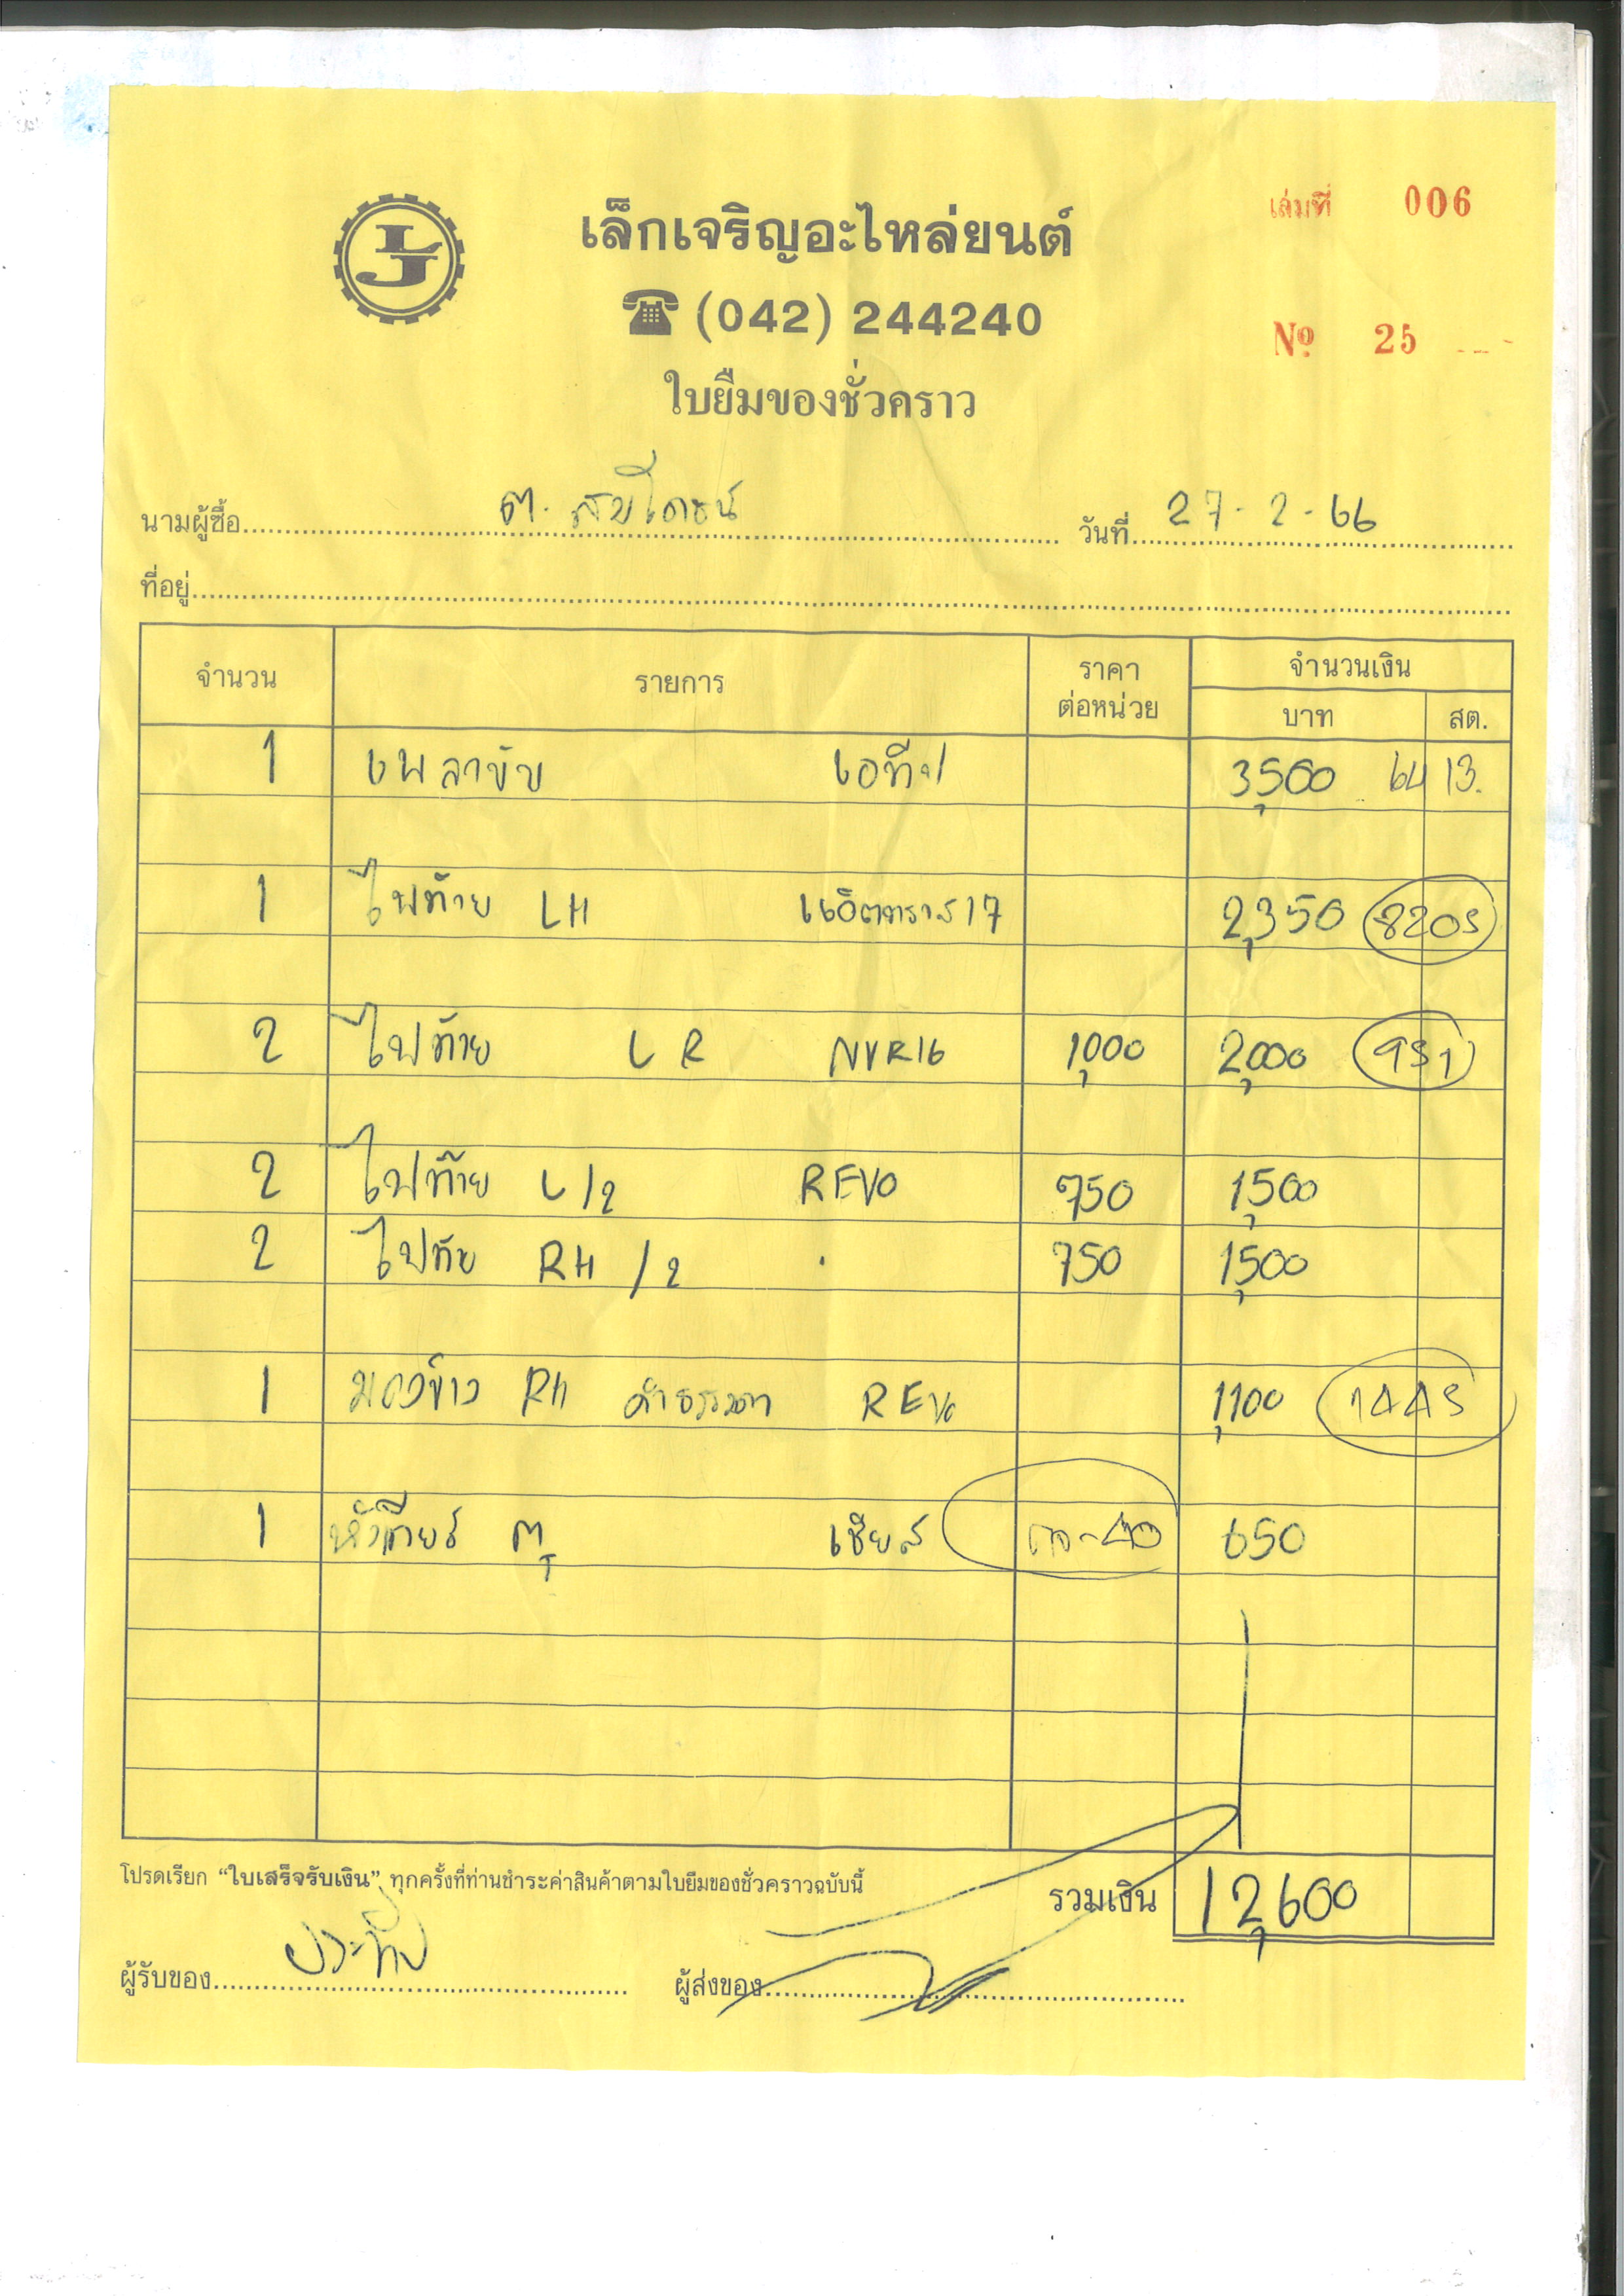 เล่มที่ 006
LJ
เล็กเจริญอะไหล่ยนต์
(042) 244240
Nº 25
ใบยืมของชั่วคราว
นามผู้ซื้อ ต. วันที่ 27-2-66
ที่อยู่
จำนวน รายการ ราคา ต่อหน่วย จำนวนเงิน บาท สต.
1 เพลาขับ 3,500 64 13.
1 ไฟท้าย LH 17 2,350 8205
2 ไฟท้าย L R NVR16 1,000 2,000 951
2 ไฟท้าย L/2 REVO 750 1,500
2 ไฟท้าย RH/2 750 1,500
1 มองข้าง RH ดำธรรมดา REVO 1,100 1445
1 650
โปรดเรียก “ใบเสร็จรับเงิน” ทุกครั้งที่ท่านชำระค่าสินค้าตามใบยืมของชั่วคราวฉบับนี้
รวมเงิน 12,600
ผู้รับของ ประทีป ผู้ส่งของ